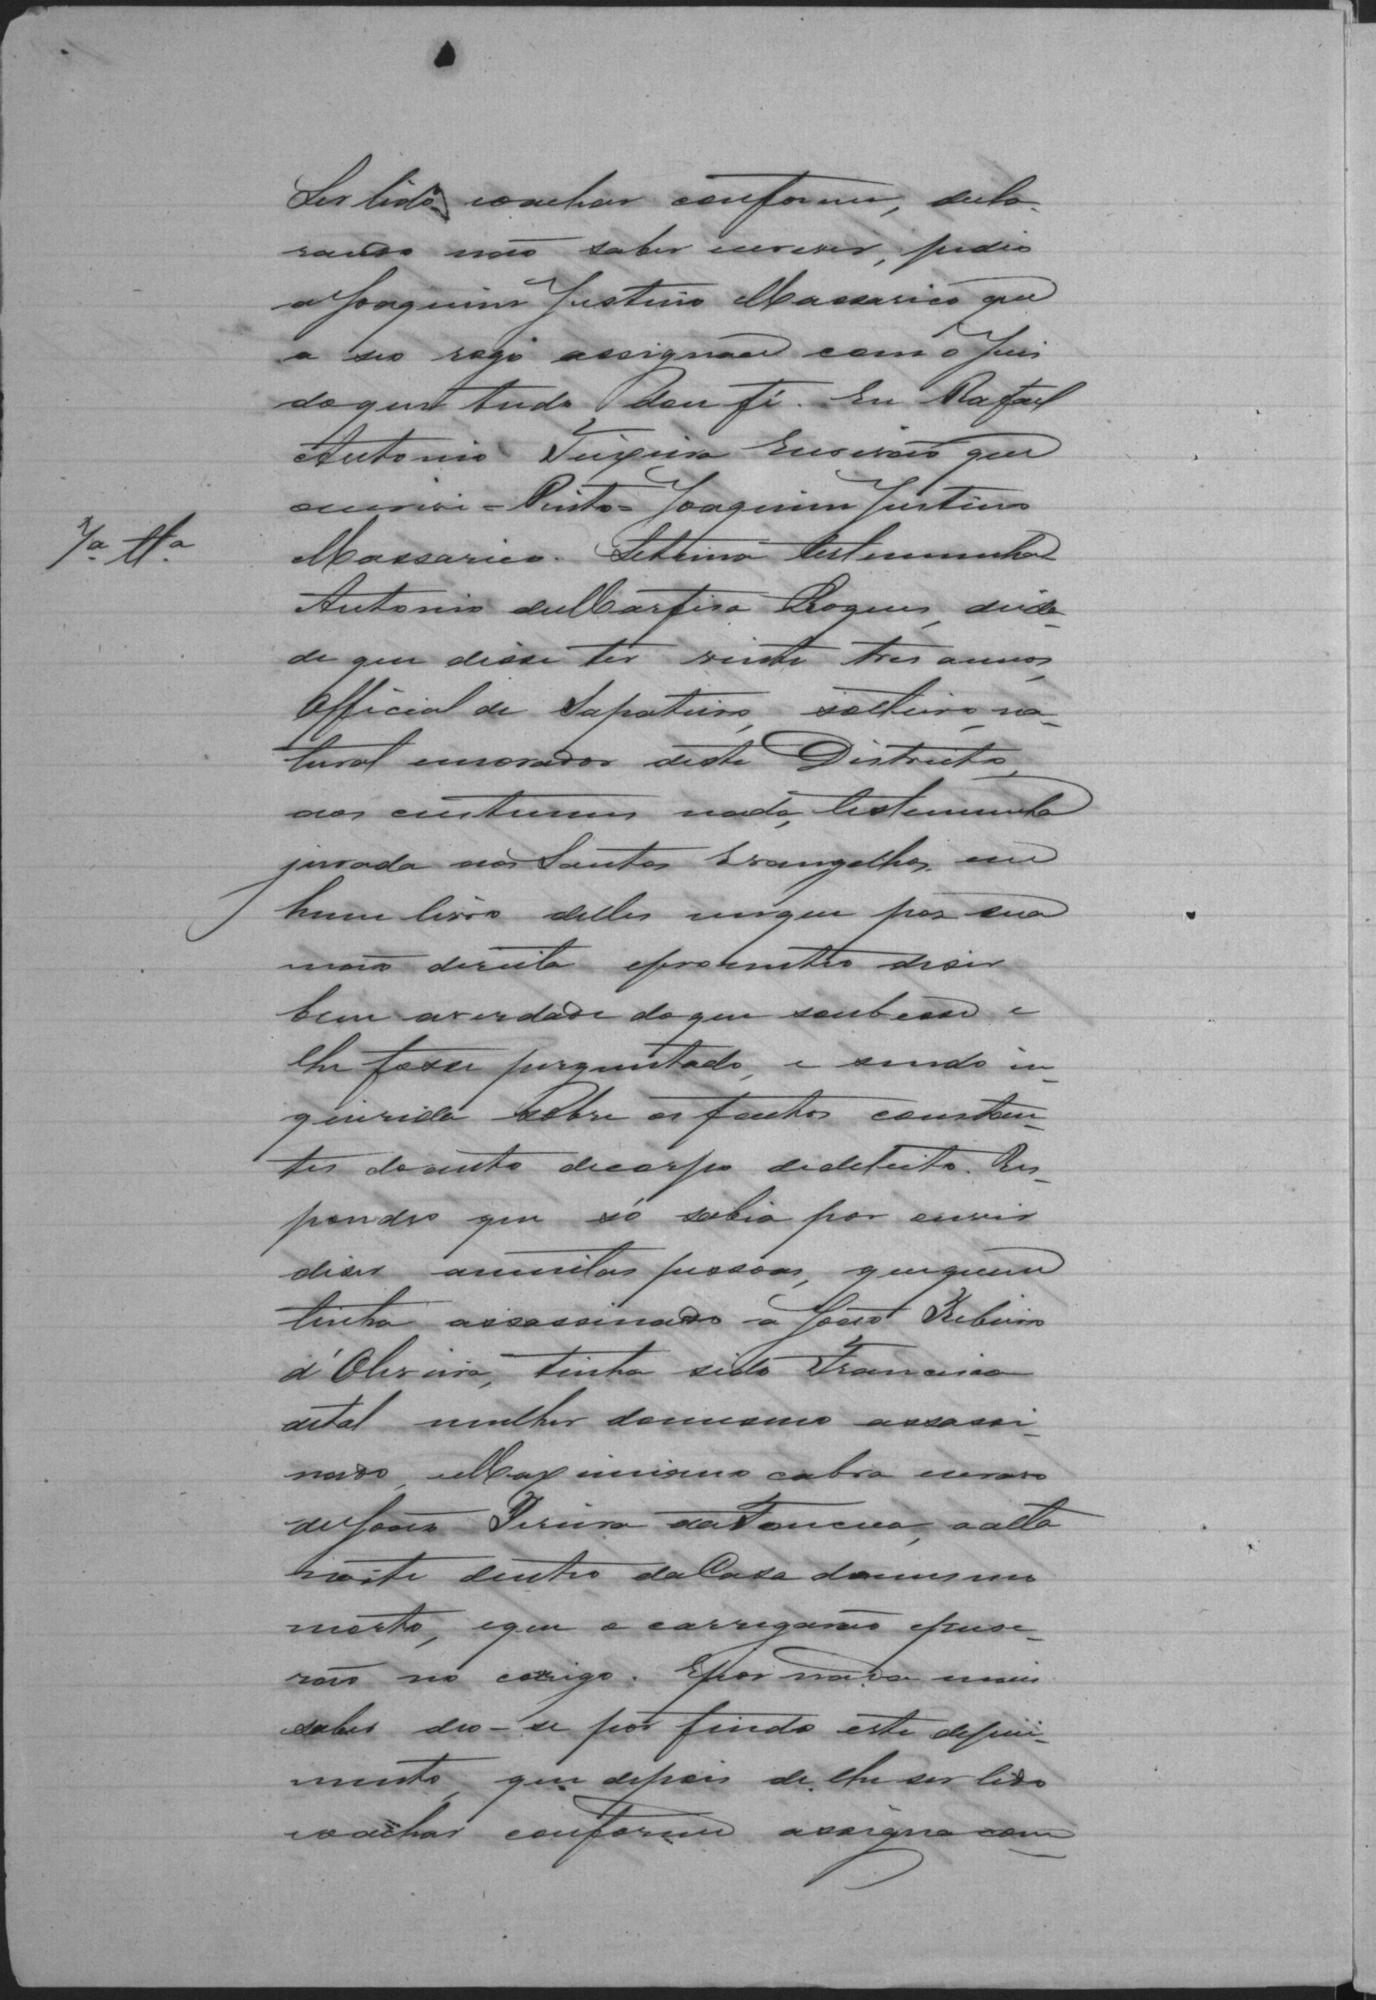 Ser lido eoachar conforme, decla-
rando não saber escrever, pedio
a Joaquim Justino Massarico que
a seo rogo assignace com o Juis
doque tudo dou fé. Eu Rafael
Antonio Teixeira Escrivão que
escrivi - Pinto - Joaquim Justino
7a. tta.
Massarico. Setima testemunha
Antonio de Roques, de ida-
de que disse ter vinte tres annos,
Official de Sapateiro, solteiro, na-
tural emorador deste Districto,
aos custumes nada, testemunha
jurada aos Santos Evangelhos em
hum livro delles emque pos sua
mão direita eprometteo diser
bem averdade doque soubesse e
lhe fosse perguntado, e sendo in-
quirida sobre os factos constan-
tes doauto decorpo dedelicto. Res-
pondeo que só sabia por ouvir
diser amuitas pessoas, quequem
tinha assassinado a João Ribeiro
d'Oliveira, tinha sido Francisca
detal mulher domesmo assassi-
nado, eMaximiano cabra escravo
deJoão Pereira daFonceca, aalta
noite dentro daCasa domesmo
morto, eque o carregarão epuse-
rão no corrigo. Epor nada mais
saber deo-se por findo este depoi-
mento, que depois de lhe ser lido
eoachar conforme assigna com